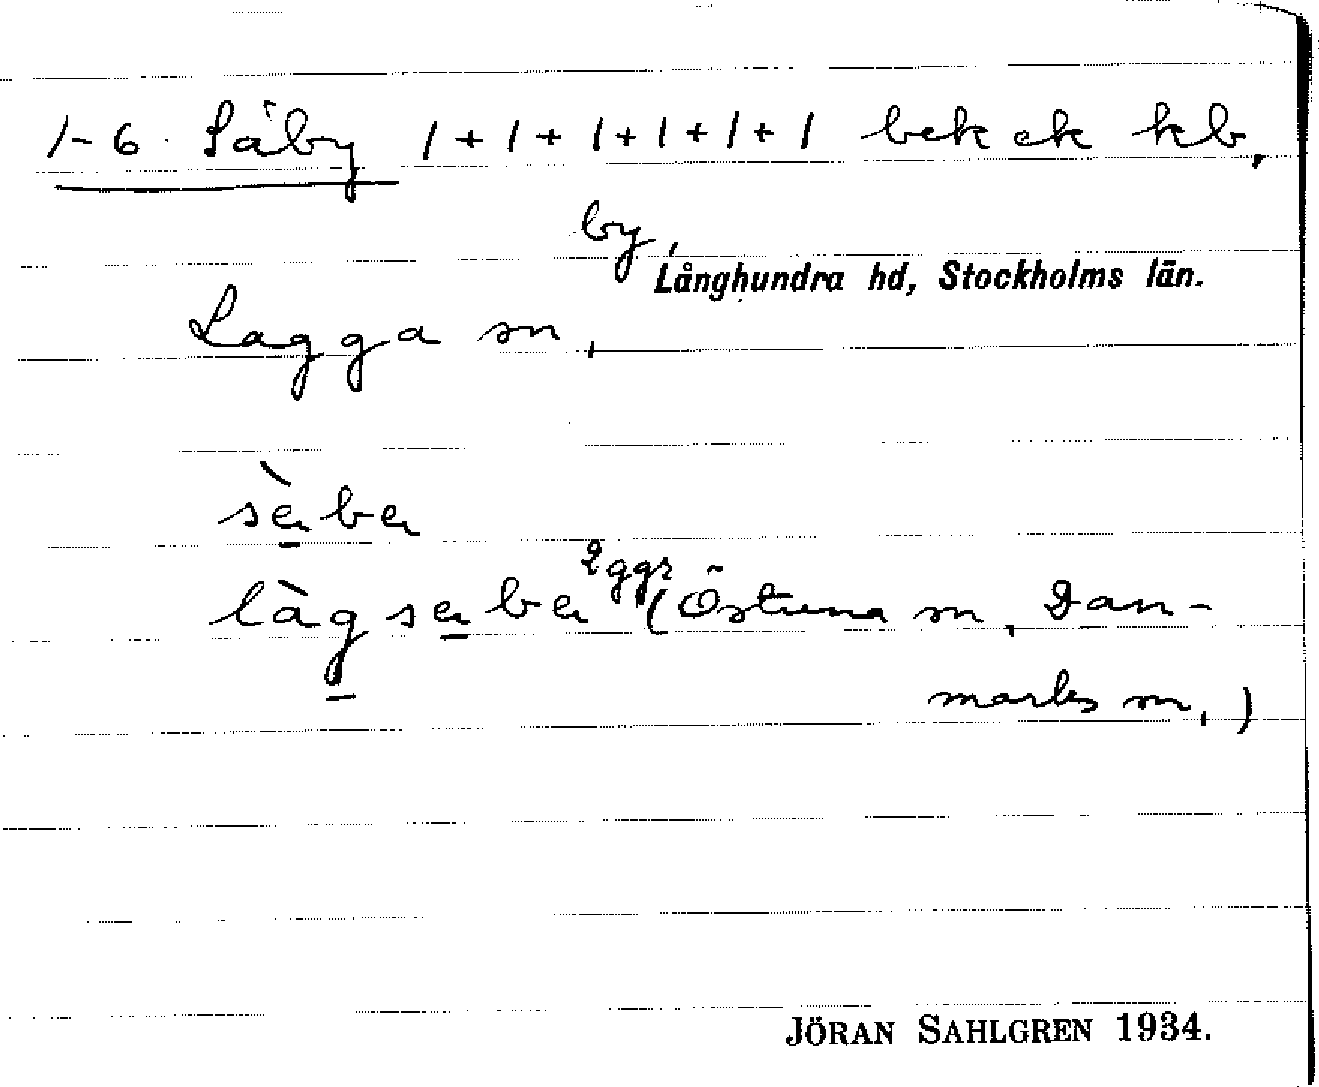 1-6. Säby 1+1+1+1+1+1 bek ek kb,
by,
Långhundra hd, Stockholms län.
Lagga sn,
2 ggr
(Östuna sn, Dan-
marks sn,)
JÖRAN SAHLGREN 1934.